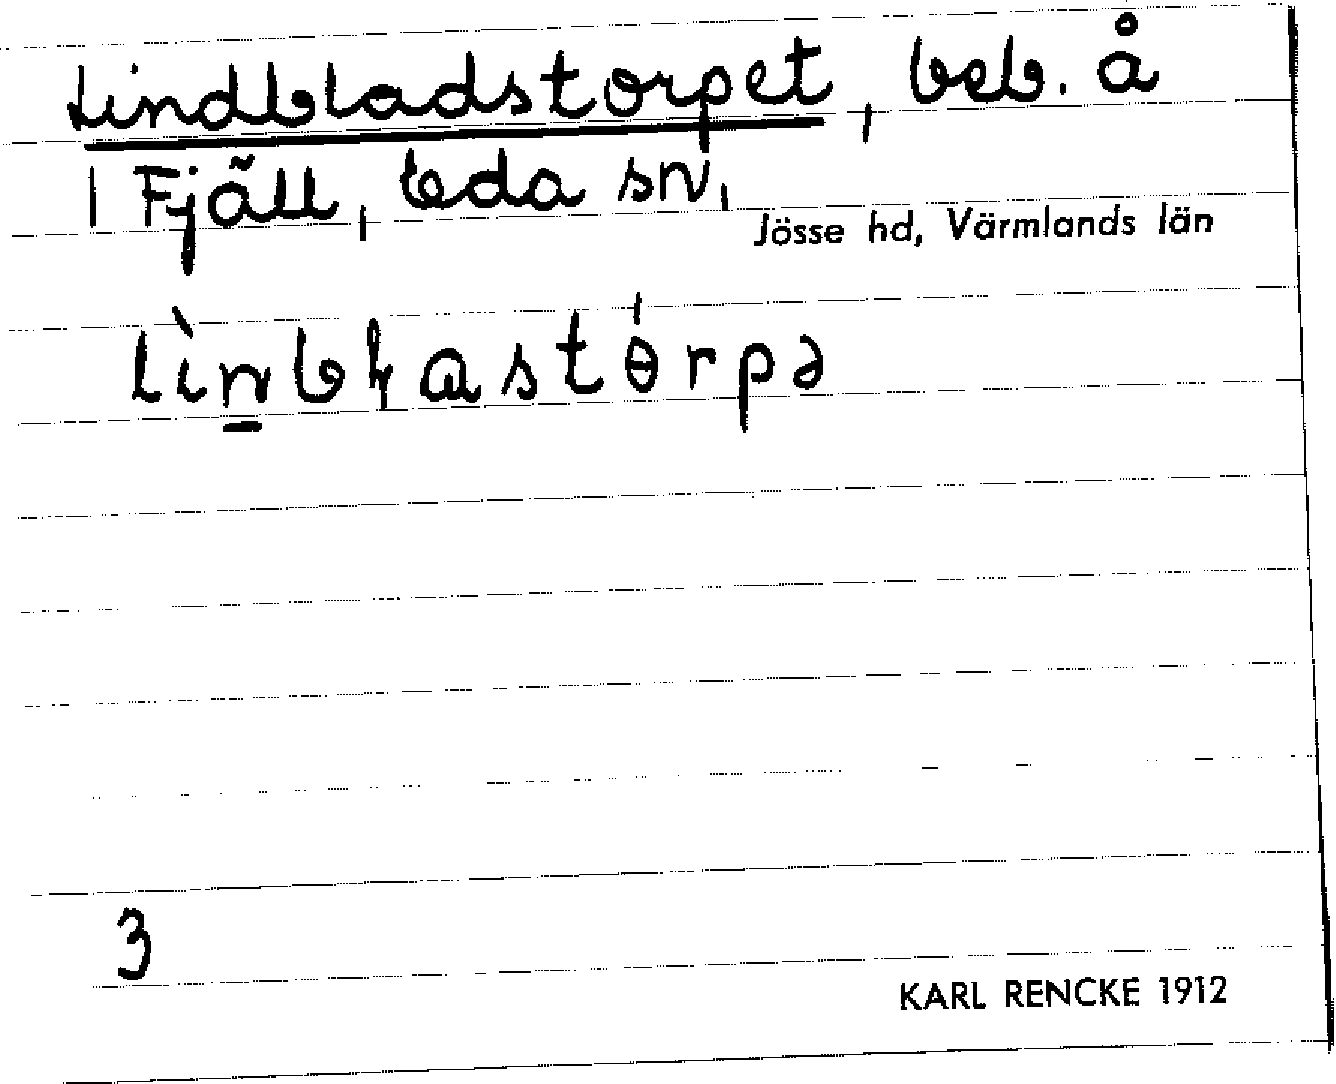 Lindbladstorpet, beb. å
1 Fjäll, Eda sn,
Jösse hd, Värmlands län
3
KARL RENCKE 1912